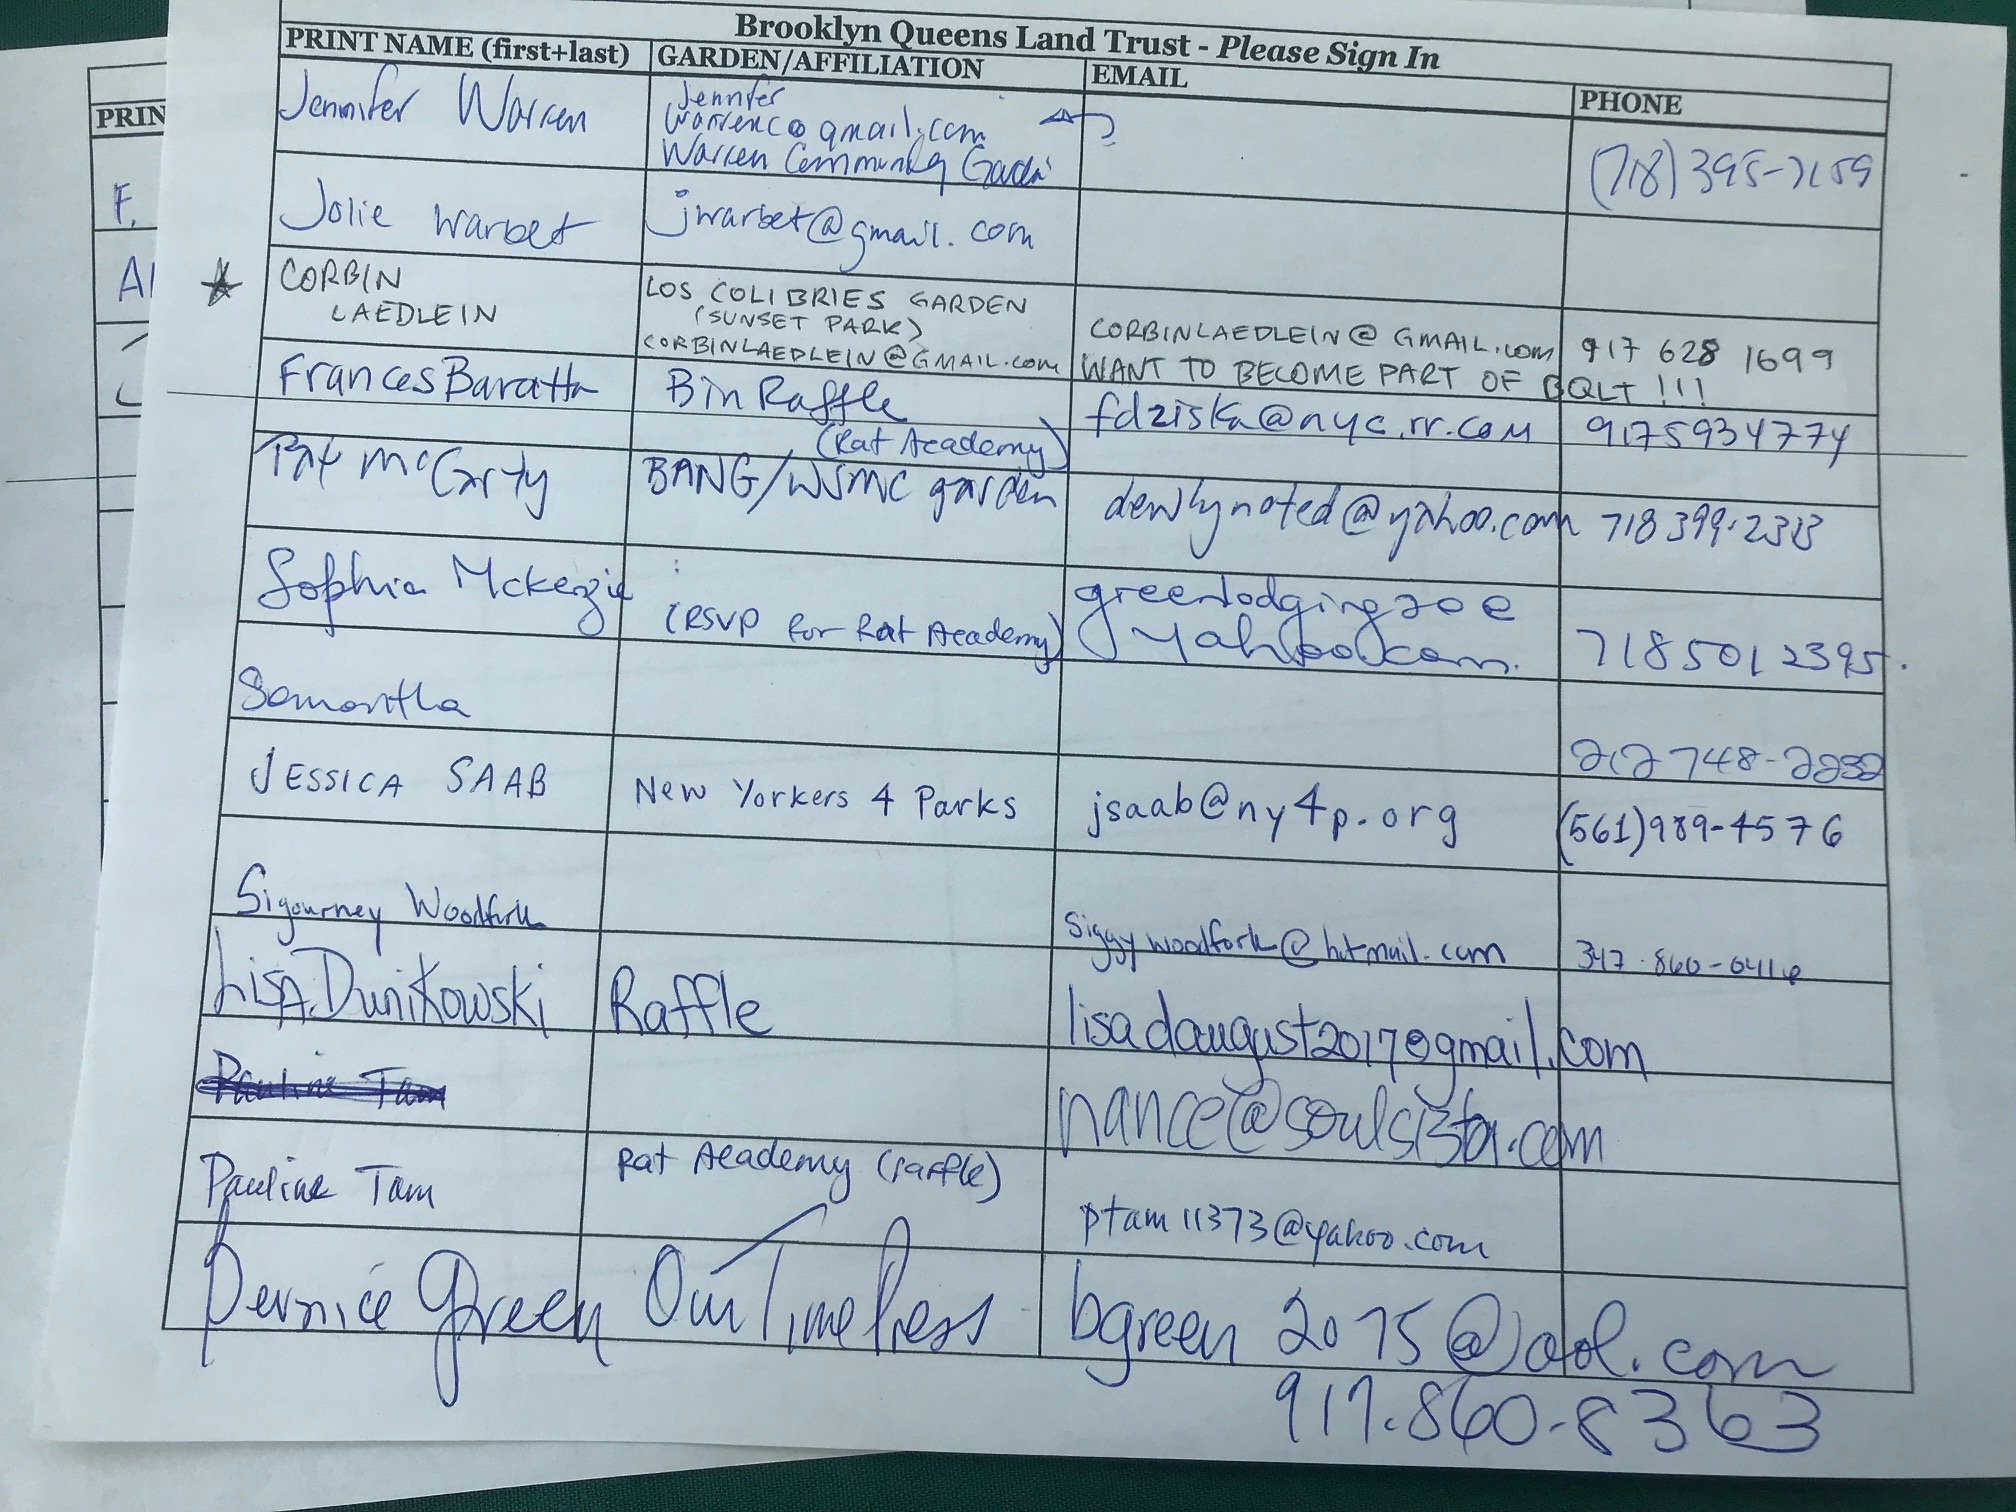 Brooklyn Queens Land Trust - Please Sign In
PRINT NAME (first+last) GARDEN/AFFILIATION EMAIL PHONE
Jennifer Warren
Jennifer
warrenc@gmail.com
Warren Community Garden
(718) 395-7159
Jolie Warbet jwarbet@gmail.com
CORBIN
LAEDLEIN
LOS COLIBRIES GARDEN
(SUNSET PARK)
CORBINLAEDLEIN@GMAIL.COM
CORBINLAEDLEIN@GMAIL.COM 917 628 1699
WANT TO BECOME PART OF BQLT!!!
Frances Baratta Bin Raffle fdziska@nyc.rr.com 9175934774
(Rat Academy)
Pat McCarty BANG/WSMC garden dewlynoted@yahoo.com 718 399-2313
Sophia Mckenzie (RSVP for Rat Academy)
greenlodging20@
yahoo.com. 7185012395.
Samantha 212 748-2232
JESSICA SAAB New Yorkers 4 Parks jsaab@ny4p.org (561)989-4576
Sigourney Woodfork siggywoodfork@hotmail.com 347-860-0416
Lisa Dunikowski Raffle lisadaugust2017@gmail.com
Pauline Tam nance@soulsista.com
Pauline Tam Rat Academy (raffle) ptam11373@yahoo.com
Bernice Green OurTimePress bgreen2075@aol.com
917.860-8363
PRIN
F.
Al